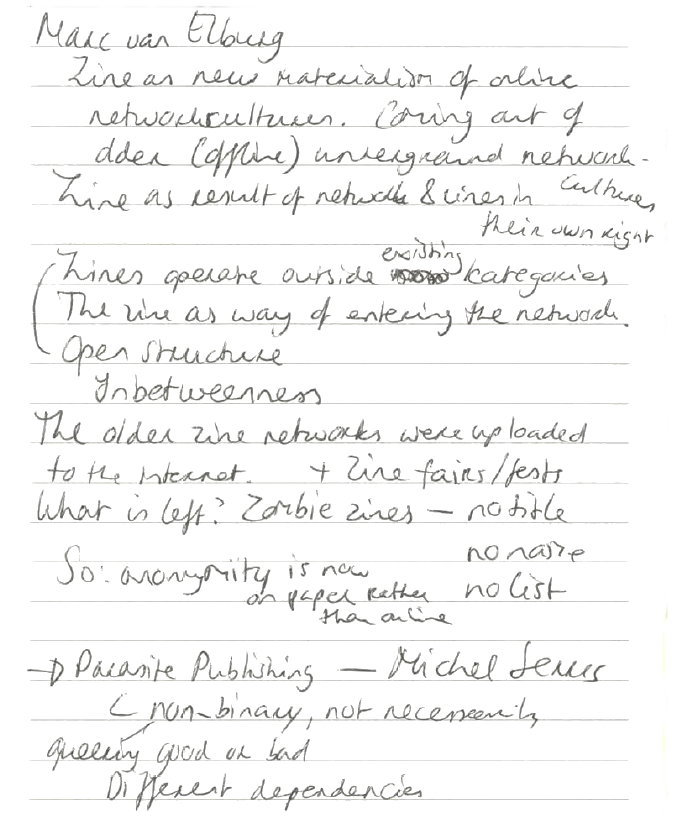 Marc van Elburg
Zine as new materialism of online
networkcultures. Coming out of
older (offline) underground network-
cultures
Zine as result of network & zines in
their own right
existing
Zines operate outside kategories
The zine as way of entering the network.
Open structure
Inbetweenness
The older zine networks were uploaded
to the Internet. + Zine fairs/fests
What is left? Zombie zines — no title
no name
So: anonymity is now
on paper rather
no list
than online
→ Parasite Publishing — Michel Serres
non-binary, not necessarily
queering good or bad
Different dependencies